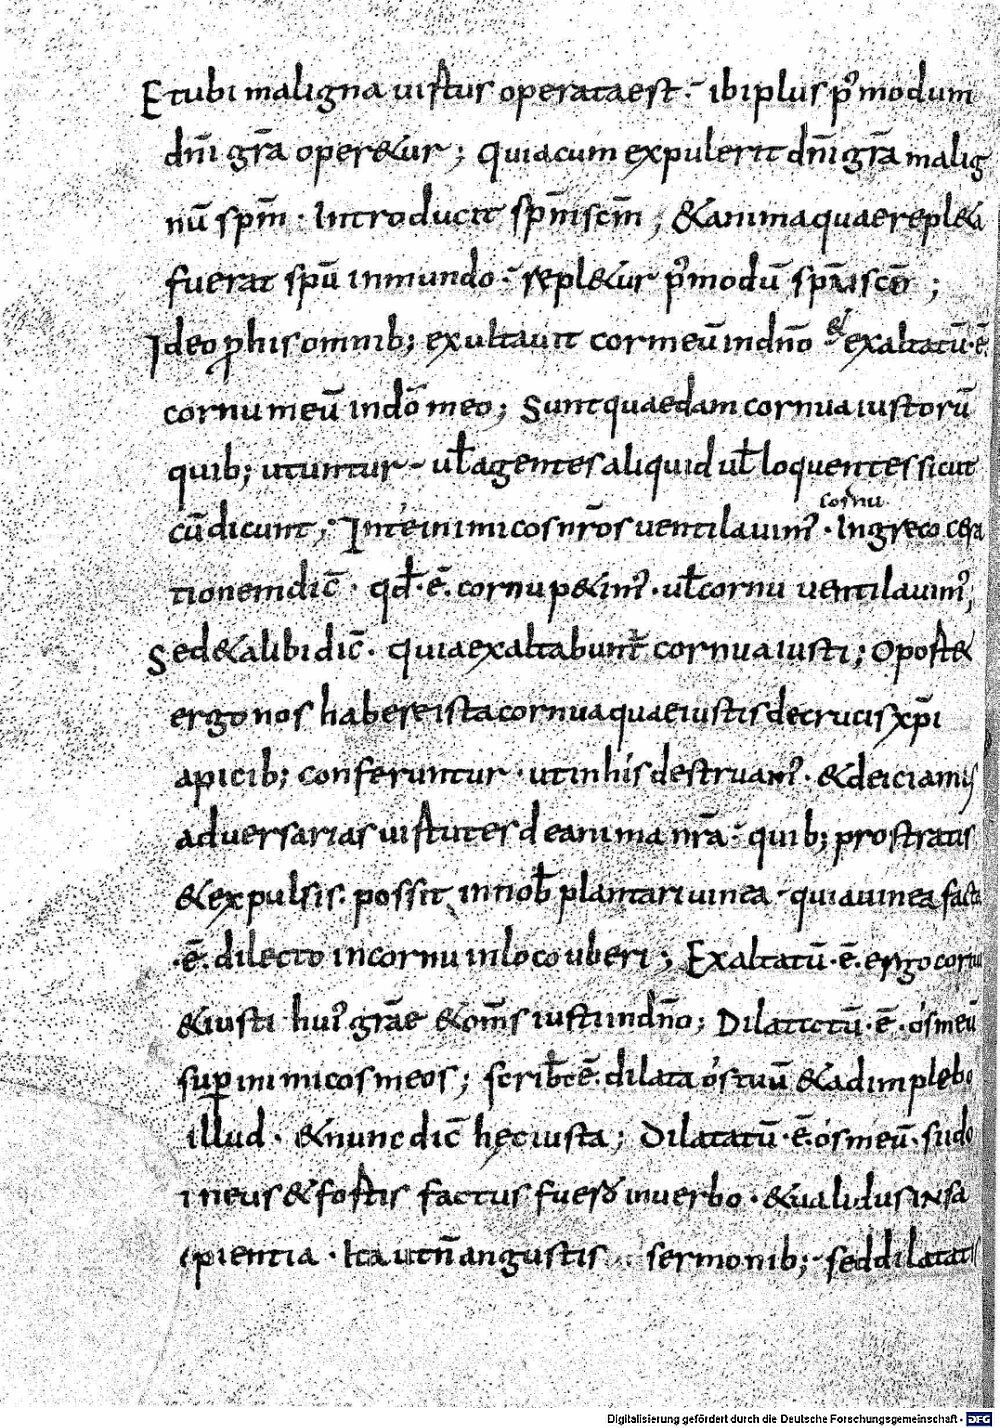 Et ubi maligna uirtus operata est · ibi plus p᷒modum
dn̄i gr̄a oper&ur ; quia cum expulerit dn̄i gr̄a malig
nū sp̄m · Introducit sp̄m sc̄m ; & anima quae repl&a
fuerat sp̄u inmundo · repl&ur p᷒modū
Ideo p his omnib; exultauit cor meū in dn̄o & exaltatū · ē ·
cornu meū in dō meo ; Sunt quaedam cornua iustorū
quib; utuntur · uł agentes aliquid uł loquentes sicut
cū dicunt ; In te inimicos nr̄os uentilauim᷒ · In greco
cornu
tionem dic̄ · qđ · ē · cornu p&im᷒ · uł cornu uentilauim᷒ ;
Sed & alibi dic̄ · quia exaltabunt̄ cornua iusti ; Oport&
ergo nos habere ista cornua quae iustis de crucis xp̄i
apicib; conferuntur · ut in his destruam᷒ · & deiciamus
aduersarias uirtutes de anima nr̄a · quib; prostratis
& expulsis · possit in nob̄ plantari uinea · quia uinea facta
· ē · dilecto in cornu in loco uberi ; Exaltatū · ē · ergo cornu
& iusti hui᷒ gr̄ae & om̄s iusti in dn̄o ; Dilatatū · ē · os meū
sup inimicos meos ; scrib̄t ē · dilata os tuū & adimplebo
illud · & nunc dic̄ hec iusta ; Dilatatū · ē · os meū · si ido
ineus & fortis factus fuero in uerbo · & ualidus in sa
pientia · Ita ut n̄ angustis sermonib; · sed dilatatis
Digitalisierung gefördert durch die Deutsche Forschungsgemeinschaft · DFG